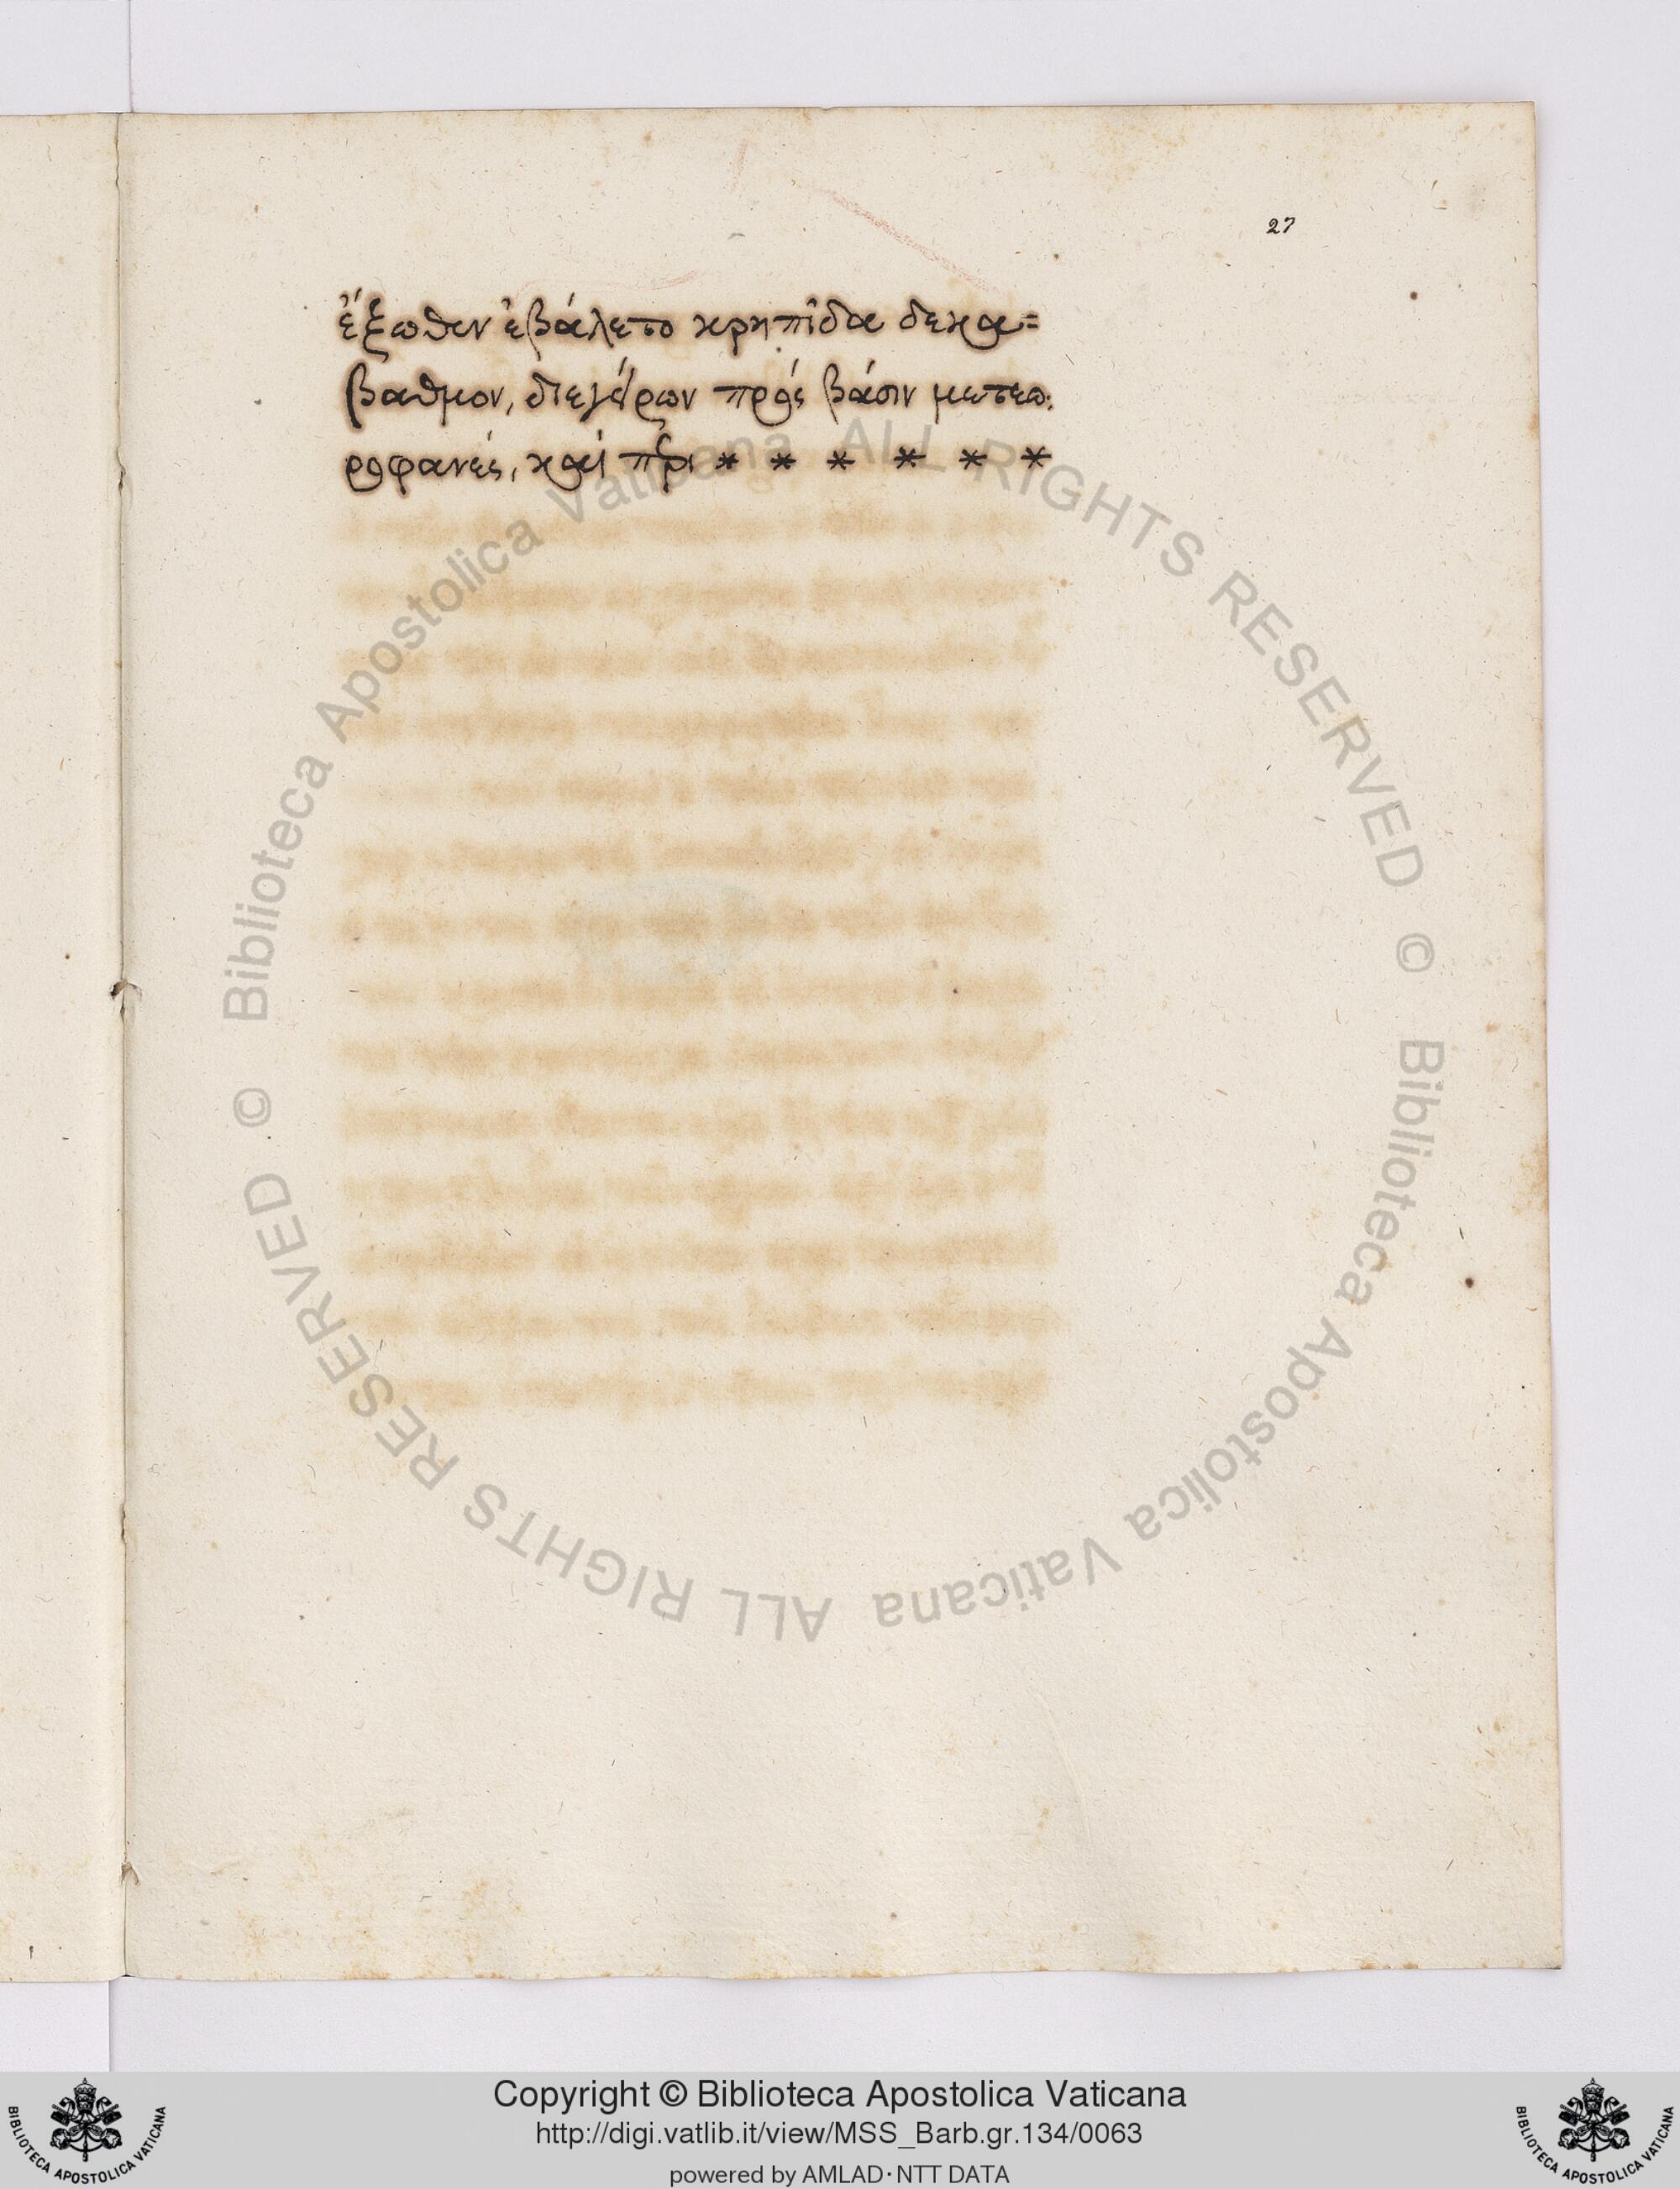 27
ἔξωθεν ἐβάλετο κρηπῖδα δεκα=
βαθμον, διεγείρων πρὸς βάσιν μετεω.
ροφανές, καὶ πρι * * * * * *
© Biblioteca Apostolica Vaticana ALL RIGHTS RESERVED
© Biblioteca Apostolica Vaticana ALL RIGHTS RESERVED
BIBLIOTECA APOSTOLICA VATICANA
Copyright © Biblioteca Apostolica Vaticana
http://digi.vatlib.it/view/MSS_Barb.gr.134/0063
powered by AMLAD·NTT DATA
BIBLIOTECA APOSTOLICA VATICANA